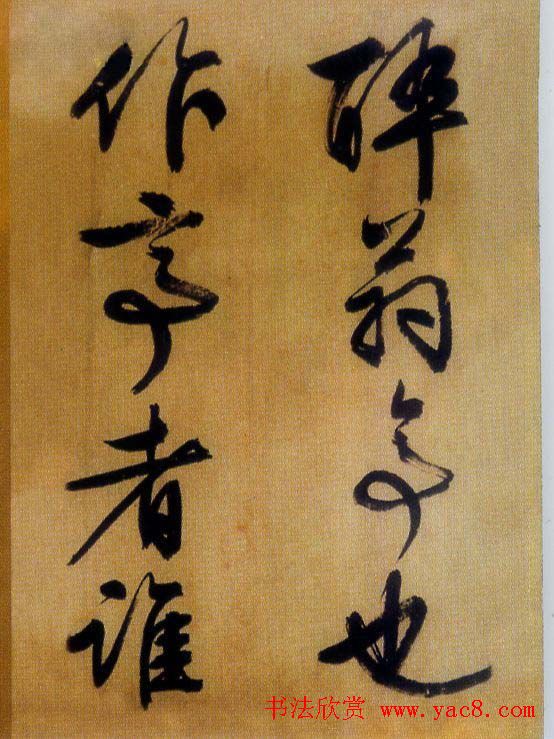 醉翁亭也
作亭者谁
书法欣赏 www.yac8.com